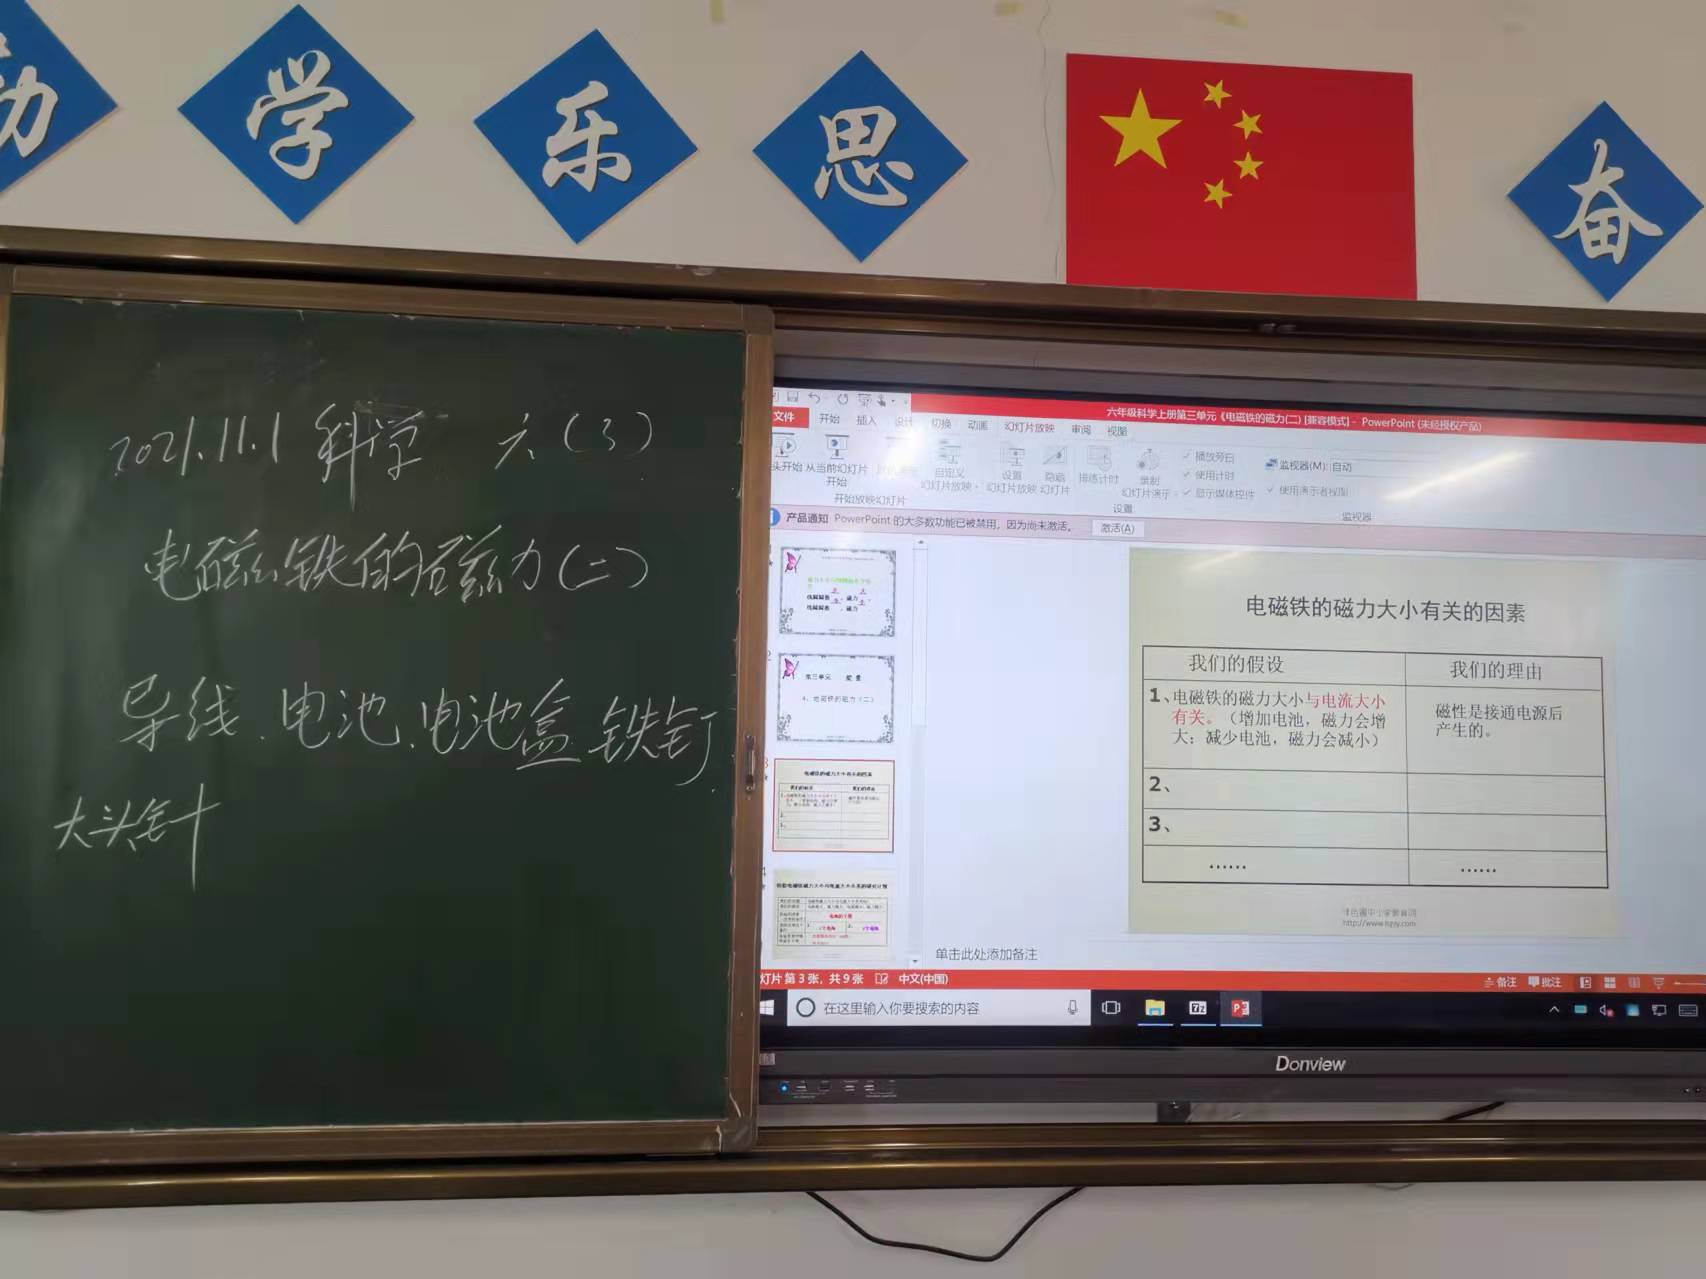 学
乐
思
奋
2021.11.1 科学 六(3)
电磁铁的磁力(二)
导线、电池、电池盒、铁钉、
大头针
六年级科学上册第三单元《电磁铁的磁力(二) [兼容模式] - PowerPoint (未经授权产品)
文件 开始 插入 设计 切换 动画 幻灯片放映 审阅 视图
头开始 从当前幻灯片开始
自定义幻灯片放映
设置幻灯片放映
隐藏幻灯片
排练计时
录制幻灯片演示
播放旁白
使用计时
显示媒体控件
监视器(M): 自动
使用演示者视图
开始放映幻灯片
设置
监视器
产品通知 PowerPoint 的大多数功能已被禁用，因为尚未激活。 激活(A)
第三单元 能量
4、电磁铁的磁力(二)
电磁铁的磁力大小有关的因素
我们的假设 我们的理由
1、电磁铁的磁力大小与电流大小
有关。（增加电池，磁力会增
大；减少电池，磁力会减小）
磁性是接通电源后
产生的。
2、
3、
…… ……
绿色圃中小学教育网
http://www.lspjy.com
单击此处添加备注
灯片 第 3 张，共 9 张 中文(中国)
备注 批注
在这里输入你要搜索的内容
Donview